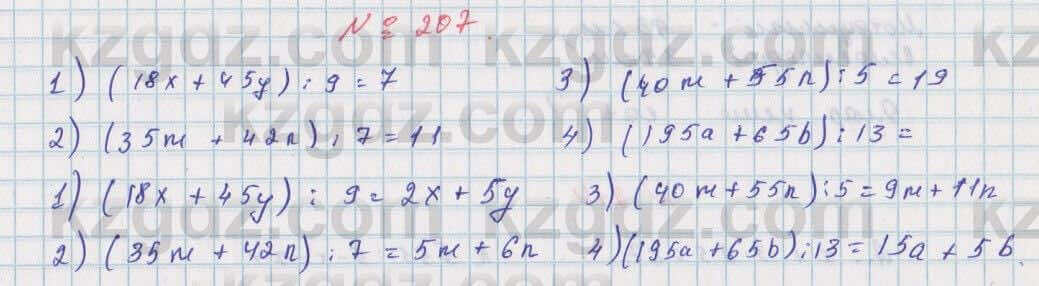 № 207.
1) (18x + 45y) : 9 = 7   3) (40m + 55n) : 5 = 19
2) (35m + 42n) : 7 = 11   4) (195a + 65b) : 13 =
1) (18x + 45y) : 9 = 2x + 5y   3) (40m + 55n) : 5 = 9m + 11n
2) (35m + 42n) : 7 = 5m + 6n   4) (195a + 65b) : 13 = 15a + 5b.
kzgdz.com